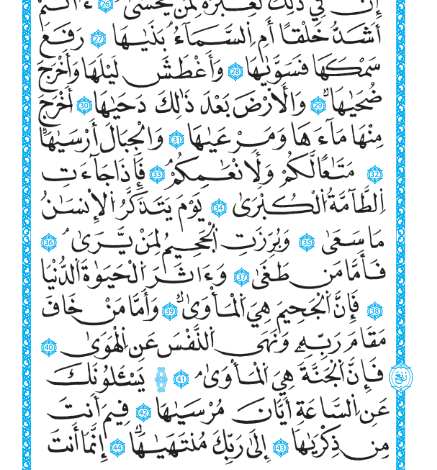 إِنَّ فِي ذَٰلِكَ لَعِبْرَةً لِّمَن يَخْشَىٰٓ 26 ءَأَنتُمْ
أَشَدُّ خَلْقًا أَمِ ٱلسَّمَآءُ بَنَىٰهَا 27 رَفَعَ
سَمْكَهَا فَسَوَّىٰهَا 28 وَأَغْطَشَ لَيْلَهَا وَأَخْرَجَ
ضُحَىٰهَا 29 وَٱلْأَرْضَ بَعْدَ ذَٰلِكَ دَحَىٰهَآ 30 أَخْرَجَ
مِنْهَا مَآءَهَا وَمَرْعَىٰهَا 31 وَٱلْجِبَالَ أَرْسَىٰهَا
32 مَتَٰعًا لَّكُمْ وَلِأَنْعَٰمِكُمْ 33 فَإِذَا جَآءَتِ
ٱلطَّآمَّةُ ٱلْكُبْرَىٰ 34 يَوْمَ يَتَذَكَّرُ ٱلْإِنسَٰنُ
مَا سَعَىٰ 35 وَبُرِّزَتِ ٱلْجَحِيمُ لِمَن يَرَىٰ 36
فَأَمَّا مَن طَغَىٰ 37 وَءَاثَرَ ٱلْحَيَوٰةَ ٱلدُّنْيَا
38 فَإِنَّ ٱلْجَحِيمَ هِيَ ٱلْمَأْوَىٰ 39 وَأَمَّا مَنْ خَافَ
مَقَامَ رَبِّهِۦ وَنَهَى ٱلنَّفْسَ عَنِ ٱلْهَوَىٰ 40
فَإِنَّ ٱلْجَنَّةَ هِيَ ٱلْمَأْوَىٰ 41 يَسْـَٔلُونَكَ
عَنِ ٱلسَّاعَةِ أَيَّانَ مُرْسَىٰهَا 42 فِيمَ أَنتَ
مِن ذِكْرَىٰهَآ 43 إِلَىٰ رَبِّكَ مُنتَهَىٰهَآ 44 إِنَّمَآ أَنتَ